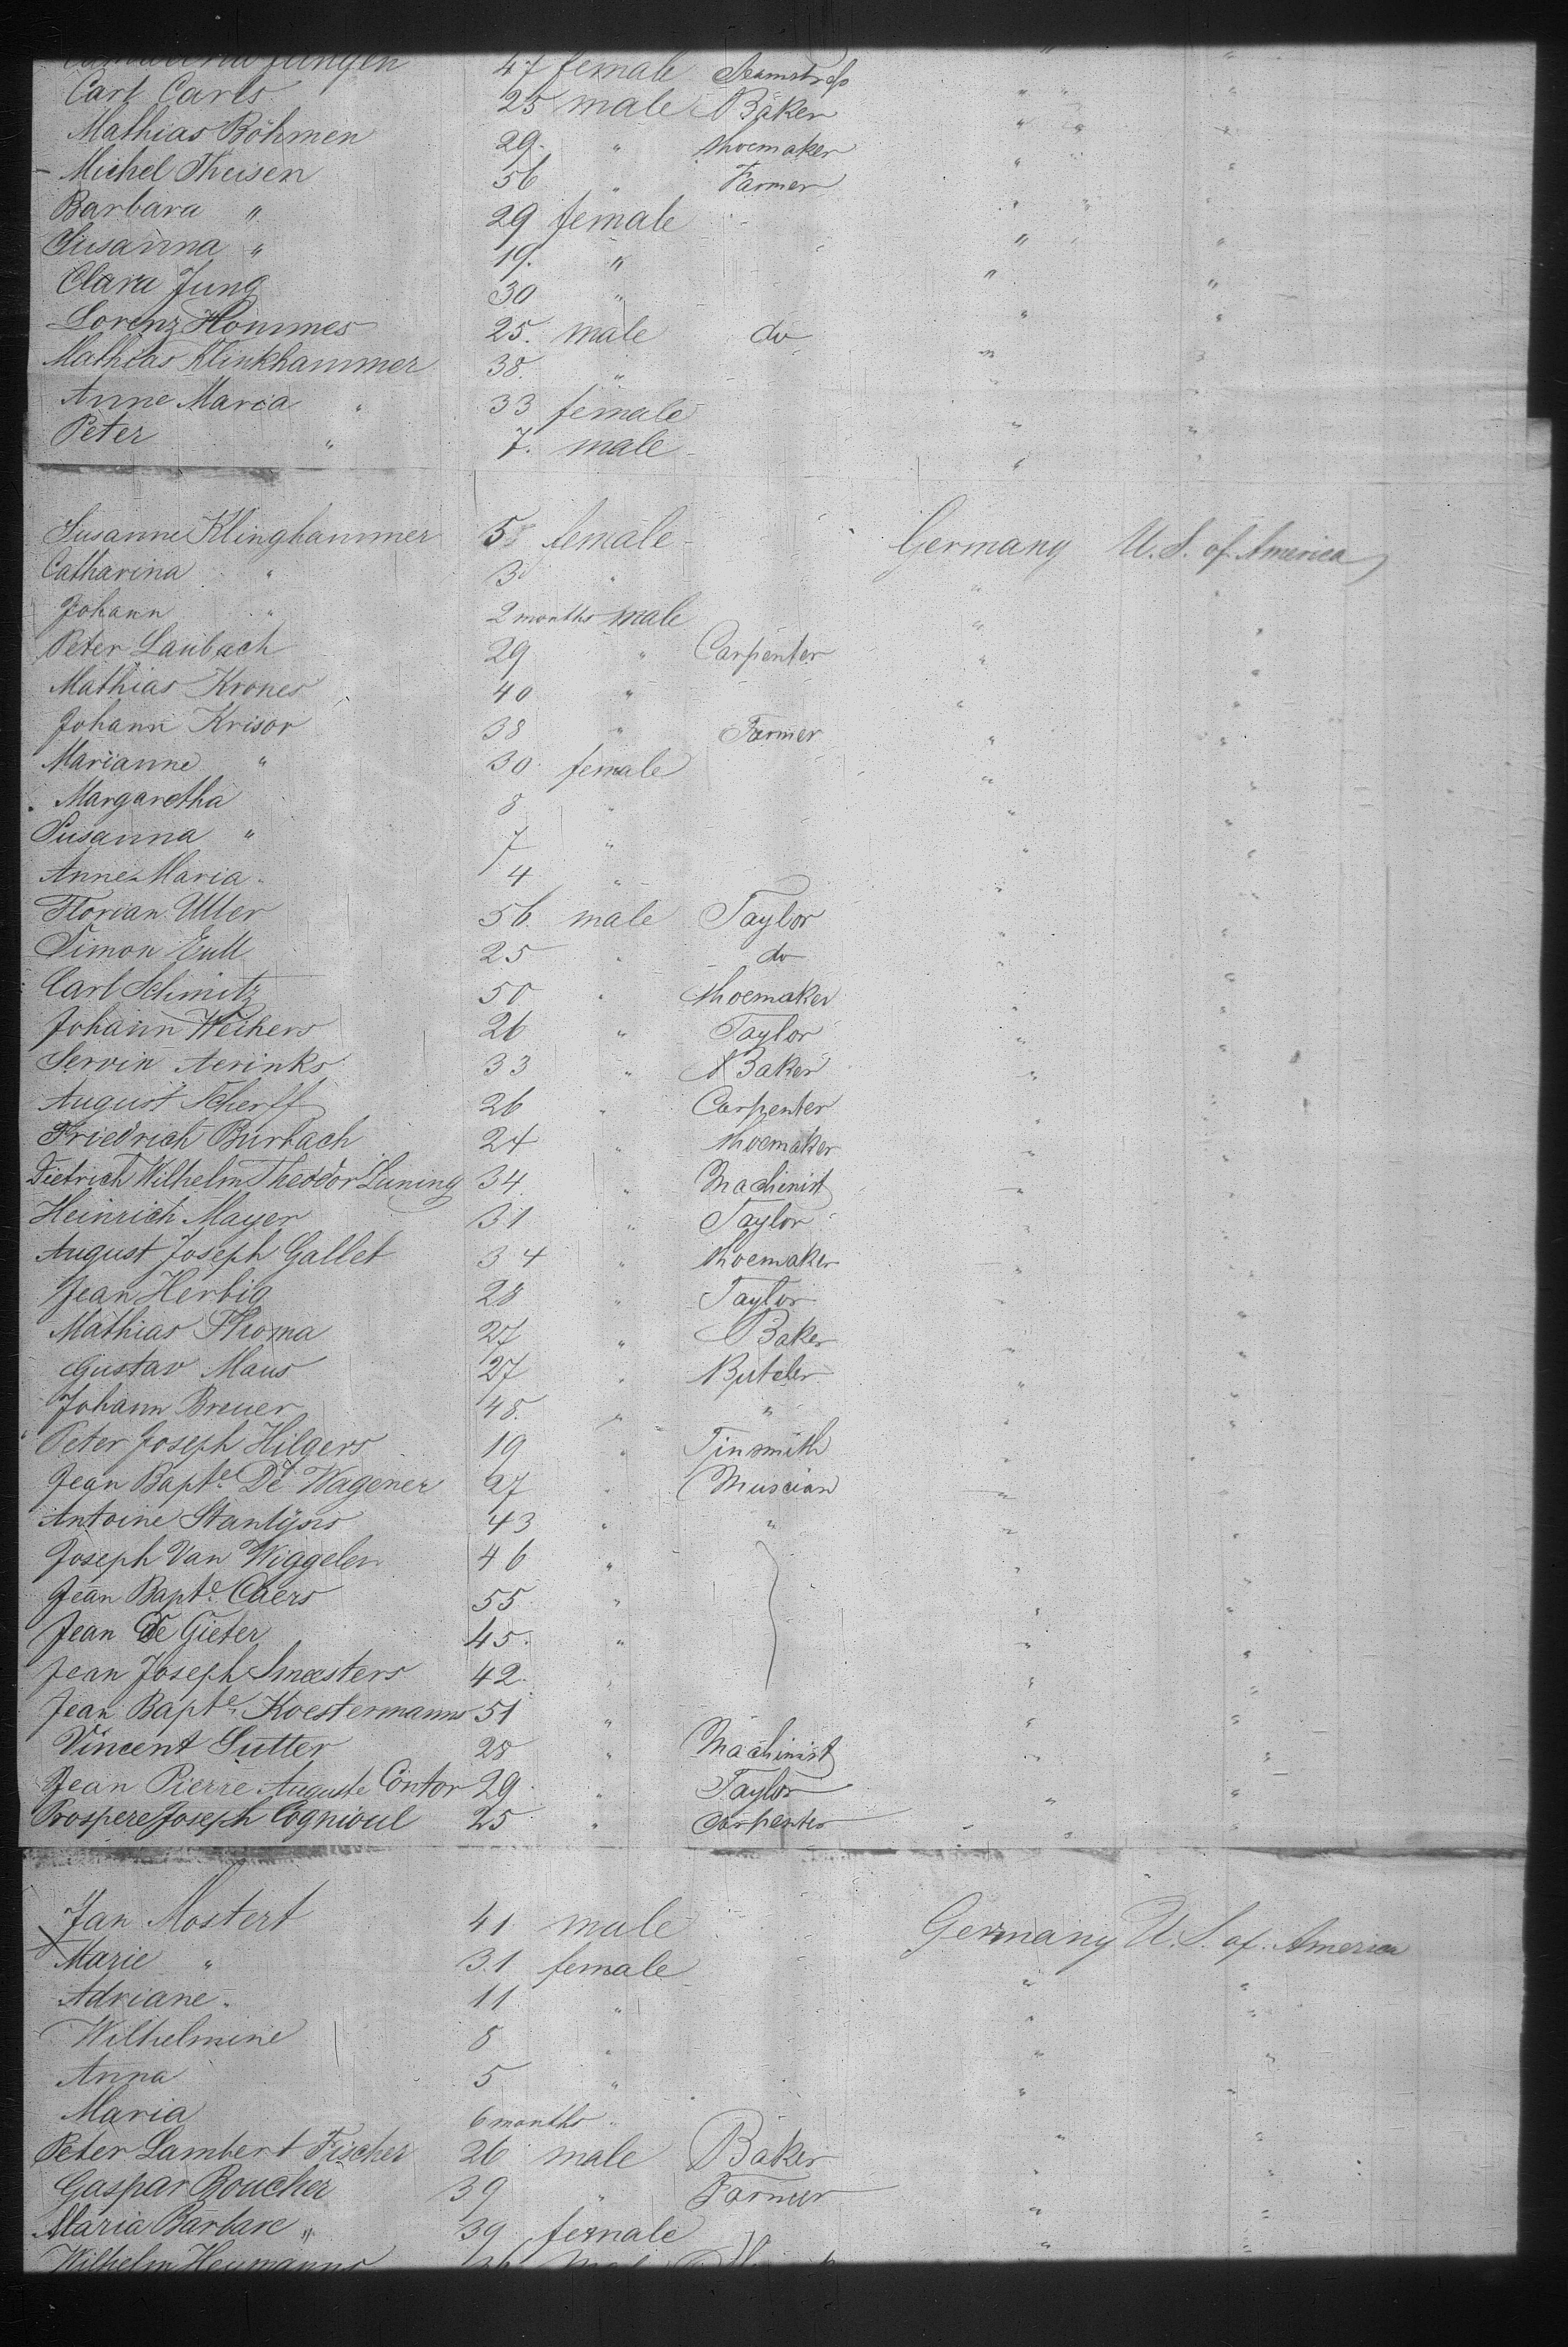 47 female Seamstress
Carl Carls 25 male Baker " " "
Mathias Böhmen 29 " Shoemaker " " "
Michel Theisen 56 " Farmer " " "
Barbara " 29 female " " "
Susanna " 19 " " " "
Clara Jung 30 " " "
Lorenz Hommes 25 male do " "
Mathias Klinkhammer 38 " " "
Anne Maria " 33 female " "
Peter " 7 male " "
Susanne Klinghammer 5 female Germany U.S. of America
Catharina " 3 " " "
Johann " 2 months male " "
Peter Laubach 29 " Carpenter " "
Mathias Krones 40 " " "
Johann Krisor 38 " Farmer " "
Marianne " 30 female " "
Margaretha 8 " " "
Susanna " 7 " " "
Anne Maria 4 " " "
Florian Uller 56 male Taylor " "
Simon Eull 25 " do " "
Carl Schmitz 50 " Shoemaker " "
Johann Weihers 26 " Taylor " "
Servin Aerinks 33 " Baker " "
August Scherff 26 " Carpenter " "
Friedrich Burbach 24 " Shoemaker " "
Dietrich Wilhelm Theodor Lüning 34 " Machinist " "
Heinrich Mayer 31 " Taylor " "
August Joseph Gallet 34 " Shoemaker " "
Jean Herbig 28 " Taylor " "
Mathias Thoma 27 " Baker " "
Gustav Maus 27 " Butcler " "
Johann Breuer 48 " " " "
Peter Joseph Hilgers 19 " Tinsmith " "
Jean Bapte. De Wagener 27 " Muscian " "
Antoine Stantijns 43 " " " "
Joseph Van Wiggelen 46 " " "
Jean Bapte. Caers 55 " " "
Jean De Gieter 45 " " "
Jean Joseph Smeesters 42 " " "
Jean Bapte. Koestermanns 51 " " "
Vincent Sutter 28 " Machinist " "
Jean Pierre Auguste Contor 29 " Taylor " "
Prospere Joseph Cognioul 25 " Carpenter " "
Jan Mostert 41 male Germany U.S. of America
Marie " 31 female " "
Adriane 11 " " "
Wilhelmine 8 " " "
Anna 5 " " "
Maria 6 months " " "
Peter Lambert Fischer 26 male Baker " "
Gaspar Boucher 39 " Farmer " "
Maria Barbare " 39 female " "
Wilhelm Heumanns